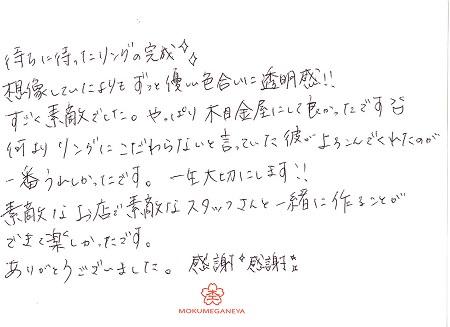 待ちに待ったリングの完成✨
想像していたよりもずっと優しい色合いに透明感!!
すごく素敵でした。やっぱり木目金屋にして良かったです
何よりリングにこだわらないと言っていた彼がよろこんでくれたのが
一番うれしかったです。一生大切にします!!
素敵なお店で素敵なスタッフさんと一緒に作ることが
できて楽しかったです。
ありがとうございました。感謝感謝
MOKUMEGANEYA